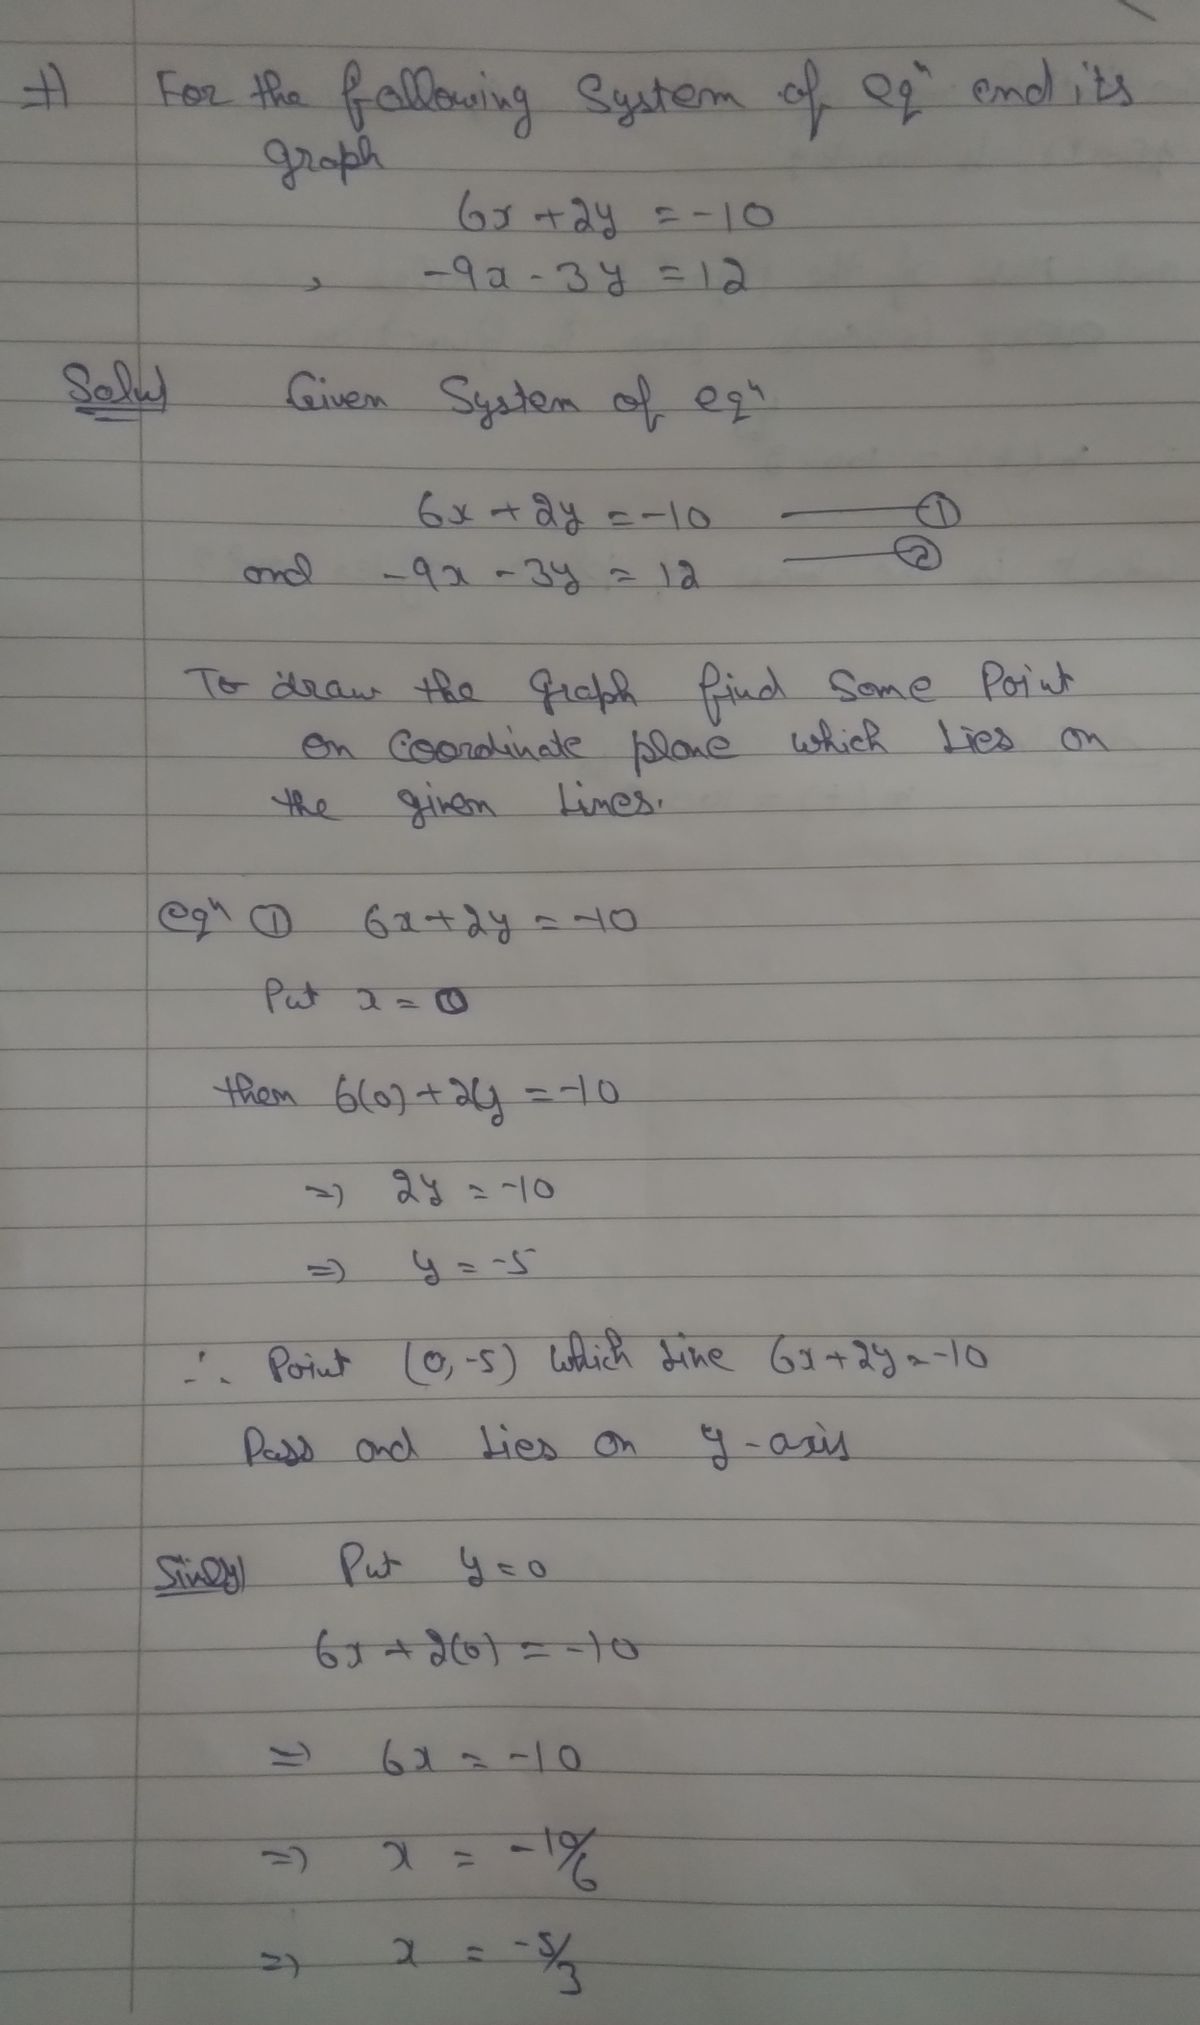 → For the following System of eqⁿ and its
graph
6x + 2y = -10
, -9x - 3y = 12
Soluⁿ Given System of eqⁿ
6x + 2y = -10 —— ①
and -9x - 3y = 12 —— ②
To draw the graph find Some Point
on Coordinate plane which Lies on
the given Lines.
eqⁿ ① 6x + 2y = -10
Put x = 0
then 6(0) + 2y = -10
⇒ 2y = -10
⇒ y = -5
∴ Point (0, -5) which Line 6x + 2y = -10
Pass and Lies on y-axis
Simly Put y = 0
6x + 2(0) = -10
⇒ 6x = -10
⇒ x = -10/6
⇒ x = -5/3